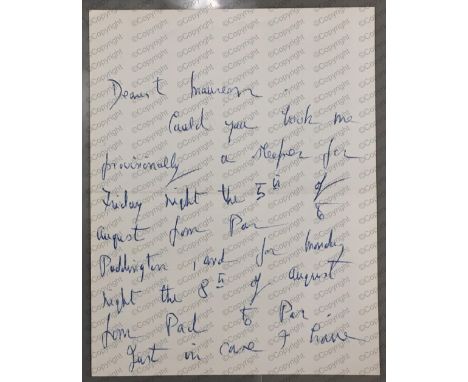 Dearest Maureen.
Could you book me
provisionally a sleeper for
Friday night the 5th of
August from Par to
Paddington, and for Monday
night the 8th of August
from Pad to Par.
Just in case I have